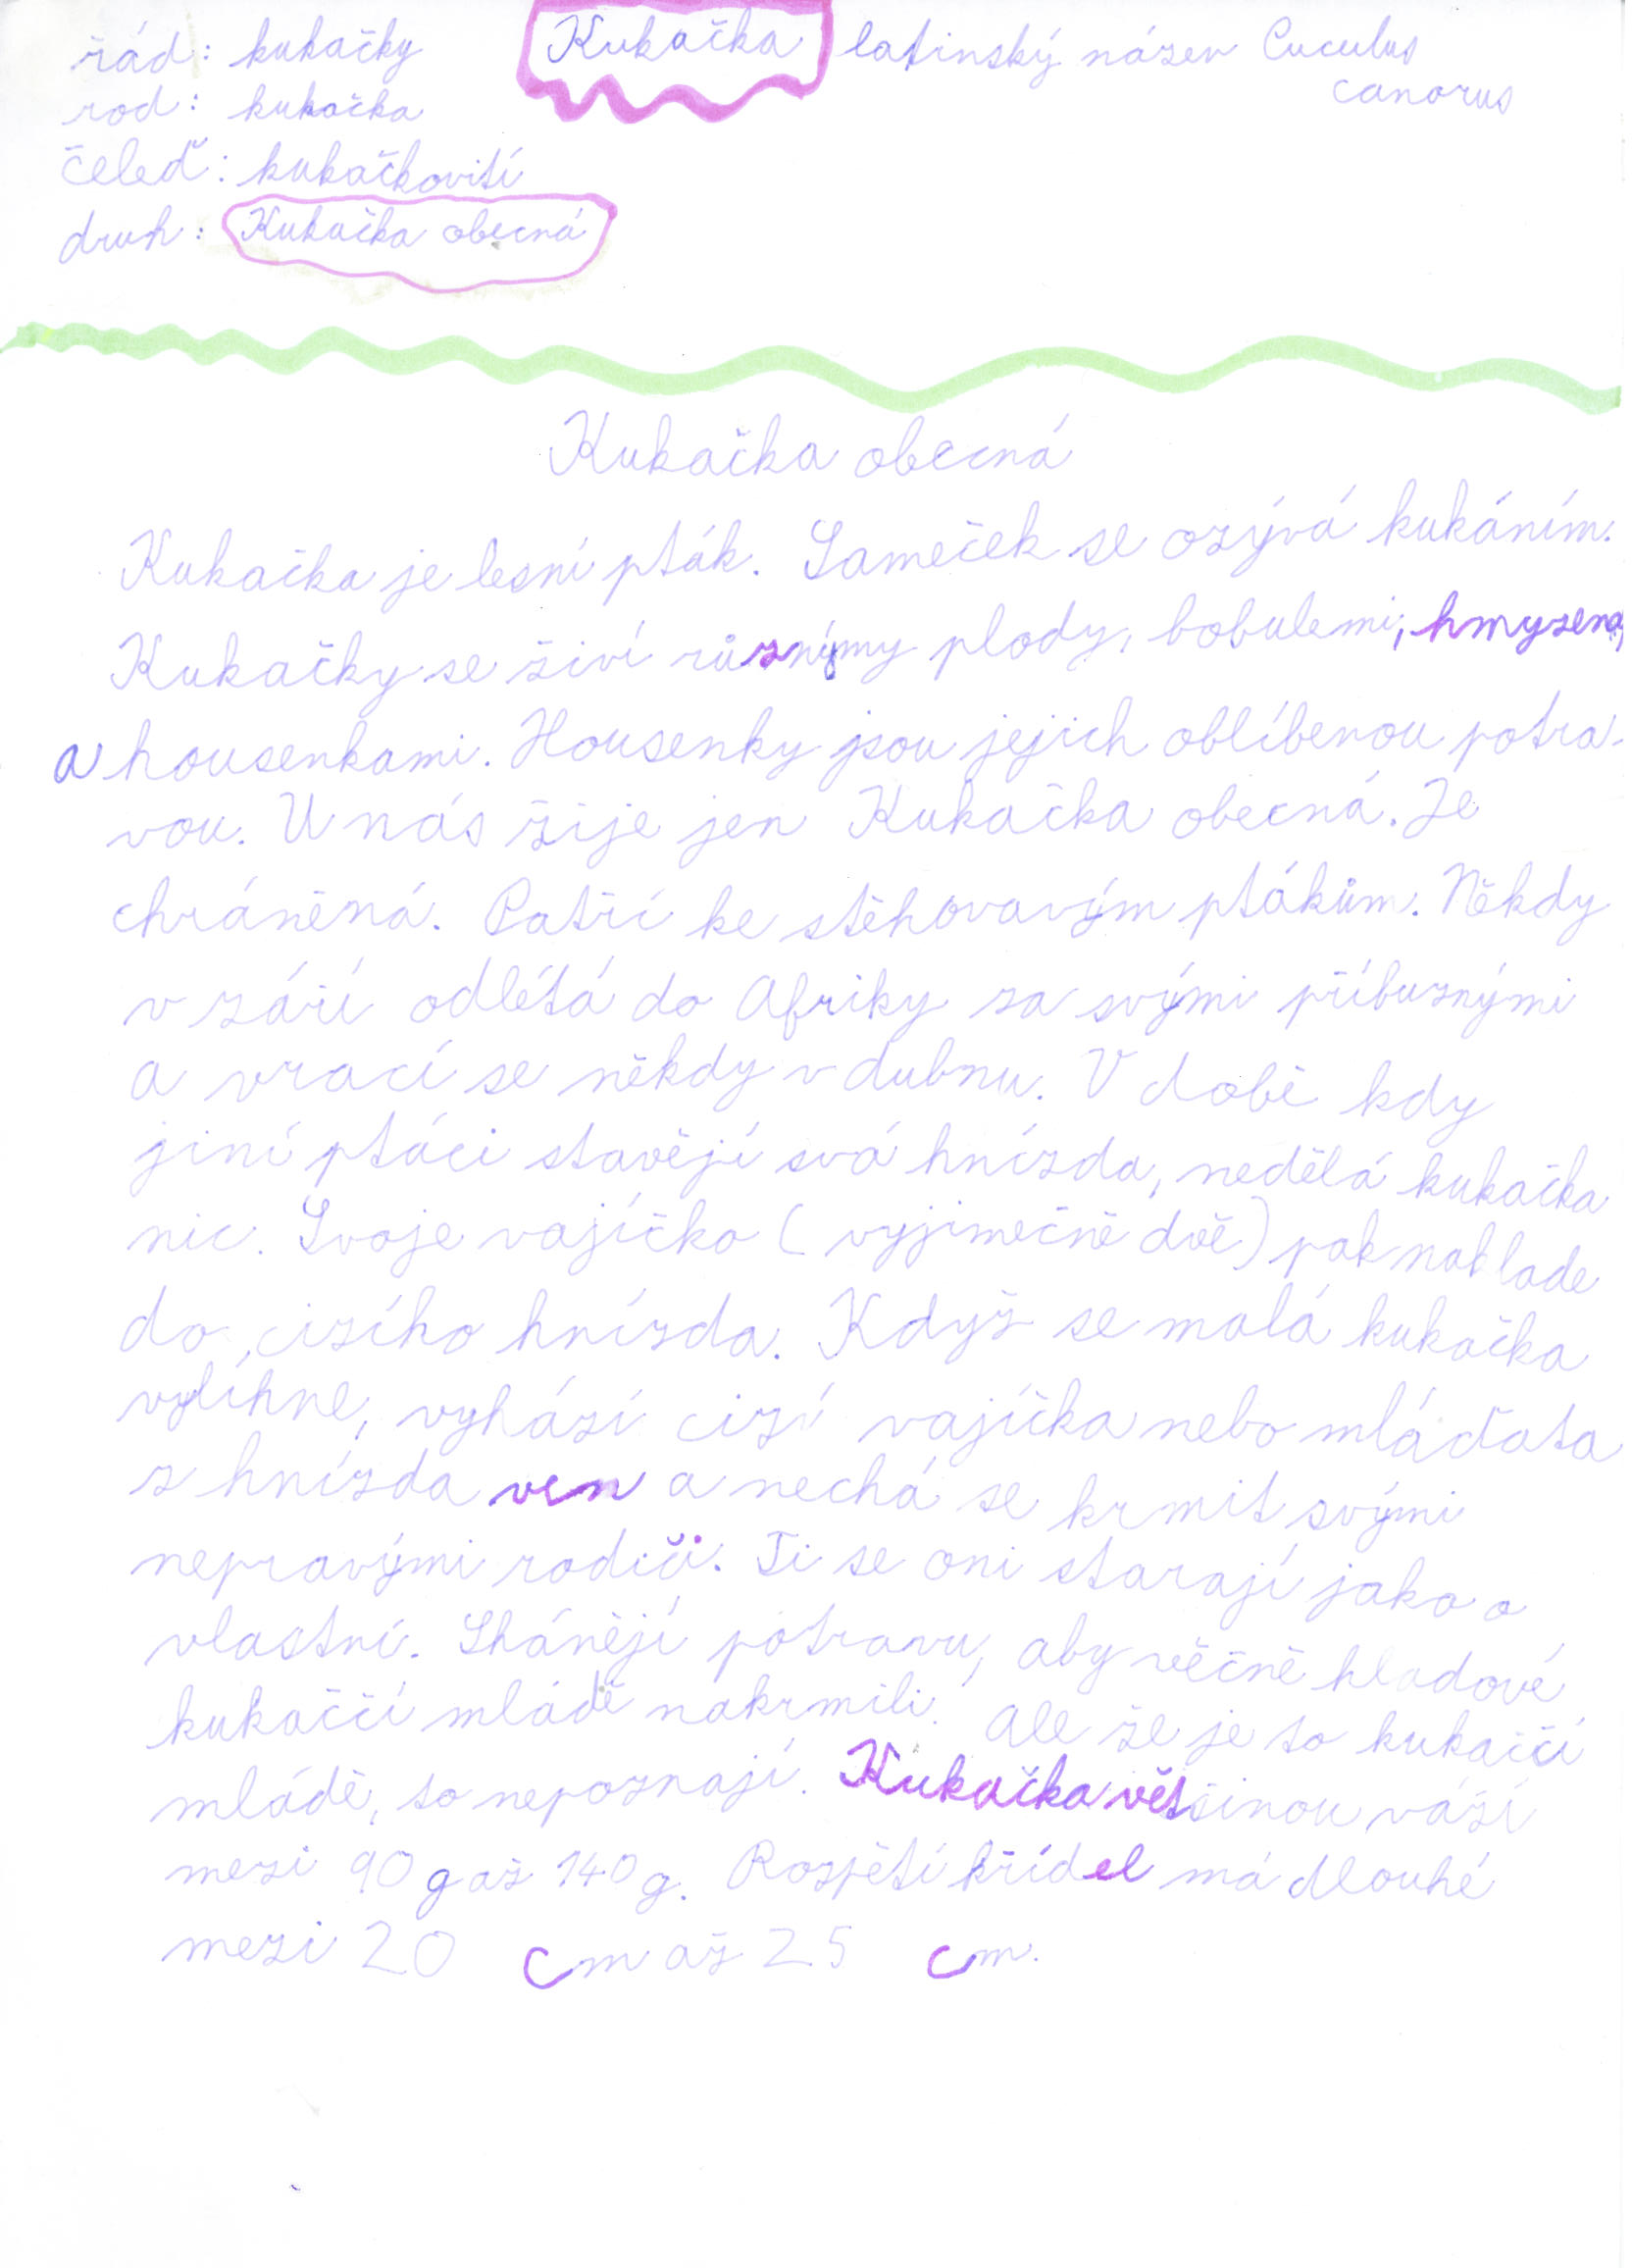 řád: kukačky Kukačka latinský název Cuculus
canorus
rod: kukačka
čeleď: kukačkovití
druh: Kukačka obecná
Kukačka obecná
Kukačka je lesní pták. Sameček se ozývá kukáním.
Kukačky se živí různýmy plody, bobulemi, hmyzem,
a housenkami. Housenky jsou jejich oblíbenou potra-
vou. U nás žije jen Kukačka obecná. Je
chráněná. Patří ke stěhovavým ptákům. Někdy
v září odlétá do Afriky za svými příbuznými
a vrací se někdy v dubnu. V době kdy
jiní ptáci stavějí svá hnízda, nedělá kukačka
nic. Svoje vajíčko (vyjimečně dvě) pak naklade
do cizího hnízda. Když se malá kukačka
vylíhne, vyhází cizí vajíčka nebo mláďata
z hnízda ven a nechá se krmit svými
nepravými rodiči. Ti se oni starají jako o
vlastní. Shánějí potravu, aby věčně hladové
kukaččí mládě nakrmili. Ale že je to kukaččí
mládě, to nepoznají. Kukačka většinou váží
mezi 90 g až 140 g. Rozpětí křídel má dlouhé
mezi 20 cm až 25 cm.